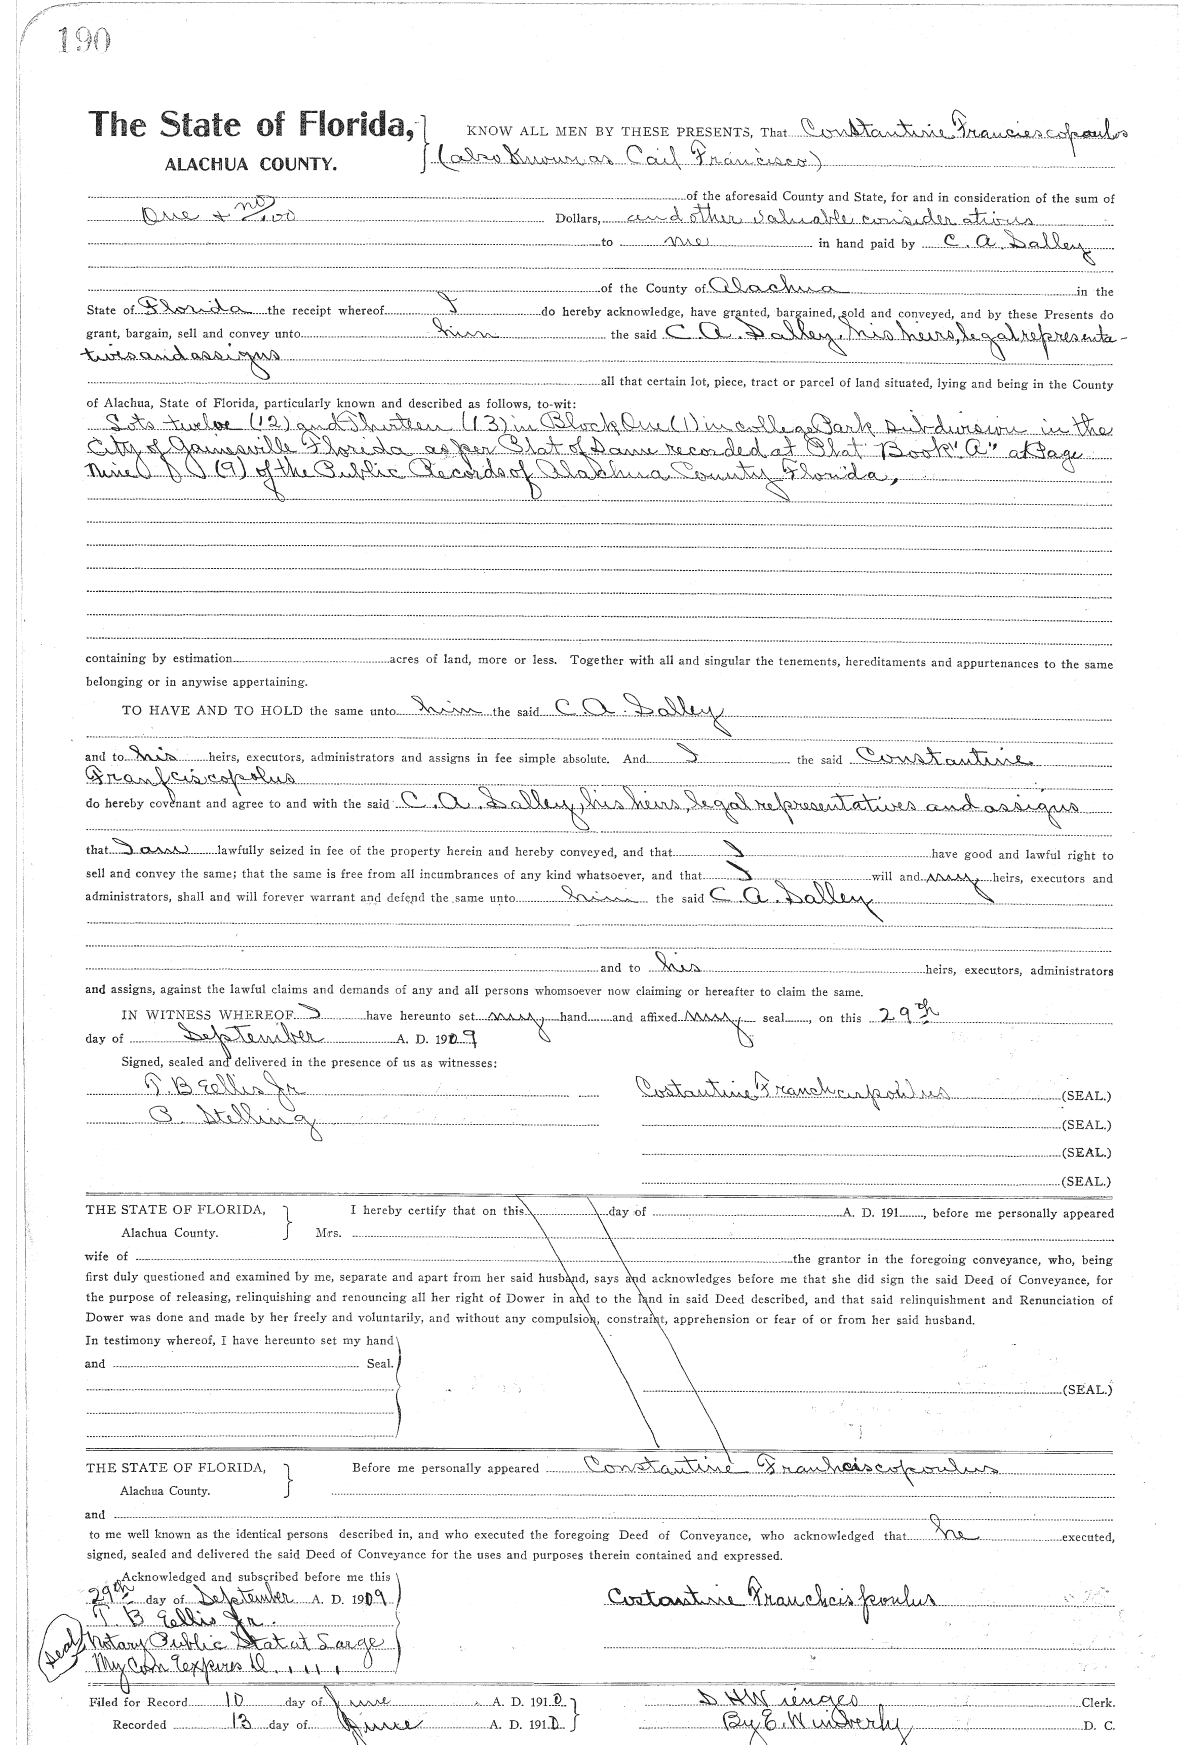 190
The State of Florida, KNOW ALL MEN BY THESE PRESENTS, That Constantine Franciescopoulos
ALACHUA COUNTY. (also Known as Cail Francisco)
of the aforesaid County and State, for and in consideration of the sum of
One + no/100 Dollars, and other valuable considerations
to me in hand paid by C. A. Salley
of the County of Alachua in the
State of Florida the receipt whereof I do hereby acknowledge, have granted, bargained, sold and conveyed, and by these Presents do
grant, bargain, sell and convey unto him the said C. A. Salley, his heirs, legal representa-
tives and assigns
all that certain lot, piece, tract or parcel of land situated, lying and being in the County
of Alachua, State of Florida, particularly known and described as follows, to-wit:
Lots twelve (12) and Thirteen (13) in Block One (1) in college Park subdivision in the
City of Gainesville Florida as per Plat of Same recorded at Plat Book "A" at Page
Nine (9) of the Public Records of Alachua County Florida,
containing by estimation acres of land, more or less. Together with all and singular the tenements, hereditaments and appurtenances to the same
belonging or in anywise appertaining.
TO HAVE AND TO HOLD the same unto him the said C. A. Salley
and to his heirs, executors, administrators and assigns in fee simple absolute. And I the said Constantine
Franfciscopolus
do hereby covenant and agree to and with the said C. A. Salley, his heirs, legal representatives and assigns
that I am lawfully seized in fee of the property herein and hereby conveyed, and that I have good and lawful right to
sell and convey the same; that the same is free from all incumbrances of any kind whatsoever, and that I will and my heirs, executors and
administrators, shall and will forever warrant and defend the same unto him the said C. A. Salley
and to his heirs, executors, administrators
and assigns, against the lawful claims and demands of any and all persons whomsoever now claiming or hereafter to claim the same.
IN WITNESS WHEREOF I have hereunto set my hand and affixed my seal, on this 29th
day of September A. D. 1909
Signed, sealed and delivered in the presence of us as witnesses:
T. B Ellis Jr Costantine Franchcispoulus (SEAL.)
P. Stelling (SEAL.)
(SEAL.)
(SEAL.)
THE STATE OF FLORIDA, I hereby certify that on this day of A. D. 191, before me personally appeared
Alachua County. Mrs.
wife of the grantor in the foregoing conveyance, who, being
first duly questioned and examined by me, separate and apart from her said husband, says and acknowledges before me that she did sign the said Deed of Conveyance, for
the purpose of releasing, relinquishing and renouncing all her right of Dower in and to the land in said Deed described, and that said relinquishment and Renunciation of
Dower was done and made by her freely and voluntarily, and without any compulsion, constraint, apprehension or fear of or from her said husband.
In testimony whereof, I have hereunto set my hand
and Seal.
(SEAL.)
THE STATE OF FLORIDA, Before me personally appeared Constantine Franhciscopoulus
Alachua County.
and
to me well known as the identical persons described in, and who executed the foregoing Deed of Conveyance, who acknowledged that he executed,
signed, sealed and delivered the said Deed of Conveyance for the uses and purposes therein contained and expressed.
Acknowledged and subscribed before me this
29th day of September A. D. 1909 Costantine Franchcispoulus
T. B Ellis Jr.
Seal Notary Public Stat at Large
My Com Expires
Filed for Record 10 day of June A. D. 1910 S H Wienges Clerk.
Recorded 13 day of June A. D. 1910 By E. Wimberly D. C.